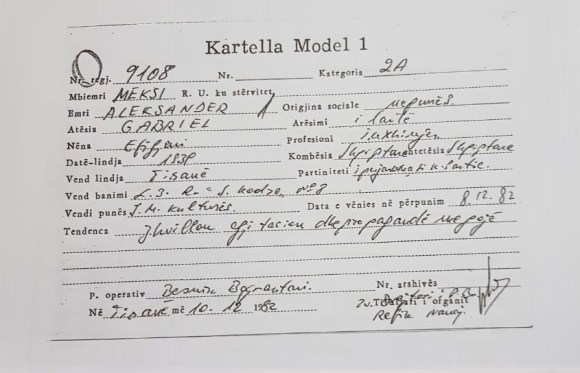 Kartella Model 1
Nr. regj. 9108 Nr. Kategoria 2A
Mbiemri MEKSI R. U. ku stërvitet
Emri ALEKSANDER Origjina sociale nepunës.
Atësia GABRIEL Arësimi i lartë
Nëna Efigjeni Profesioni inxhinjer
Datë-lindja 1939 Kombësia Shqiptare Shtetësia Shqiptare
Vend lindja Tiranë Partiniteti
Vend banimi L.3. R. S. Kodra, nº8
Vendi punës I. M. Kulturës. Data e vënies në përpunim 8.12.82
Tendenca Zhvillon agjitacion dhe propagandë
P. operativ Besnik
Nr. arshivës
Në Tiranë më 10.12 1982 Titullari i organit